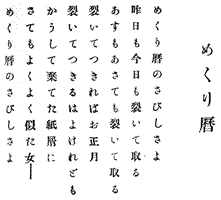 めくり暦
めくり暦のさびしさよ
昨日も今日も裂いて取る
あすもあさても裂いて取る
裂いてつきればお正月
裂いてつきるはよけれども
かうして棄てた紙屑に
さてもよくよく似た女――
めくり暦のさびしさよ